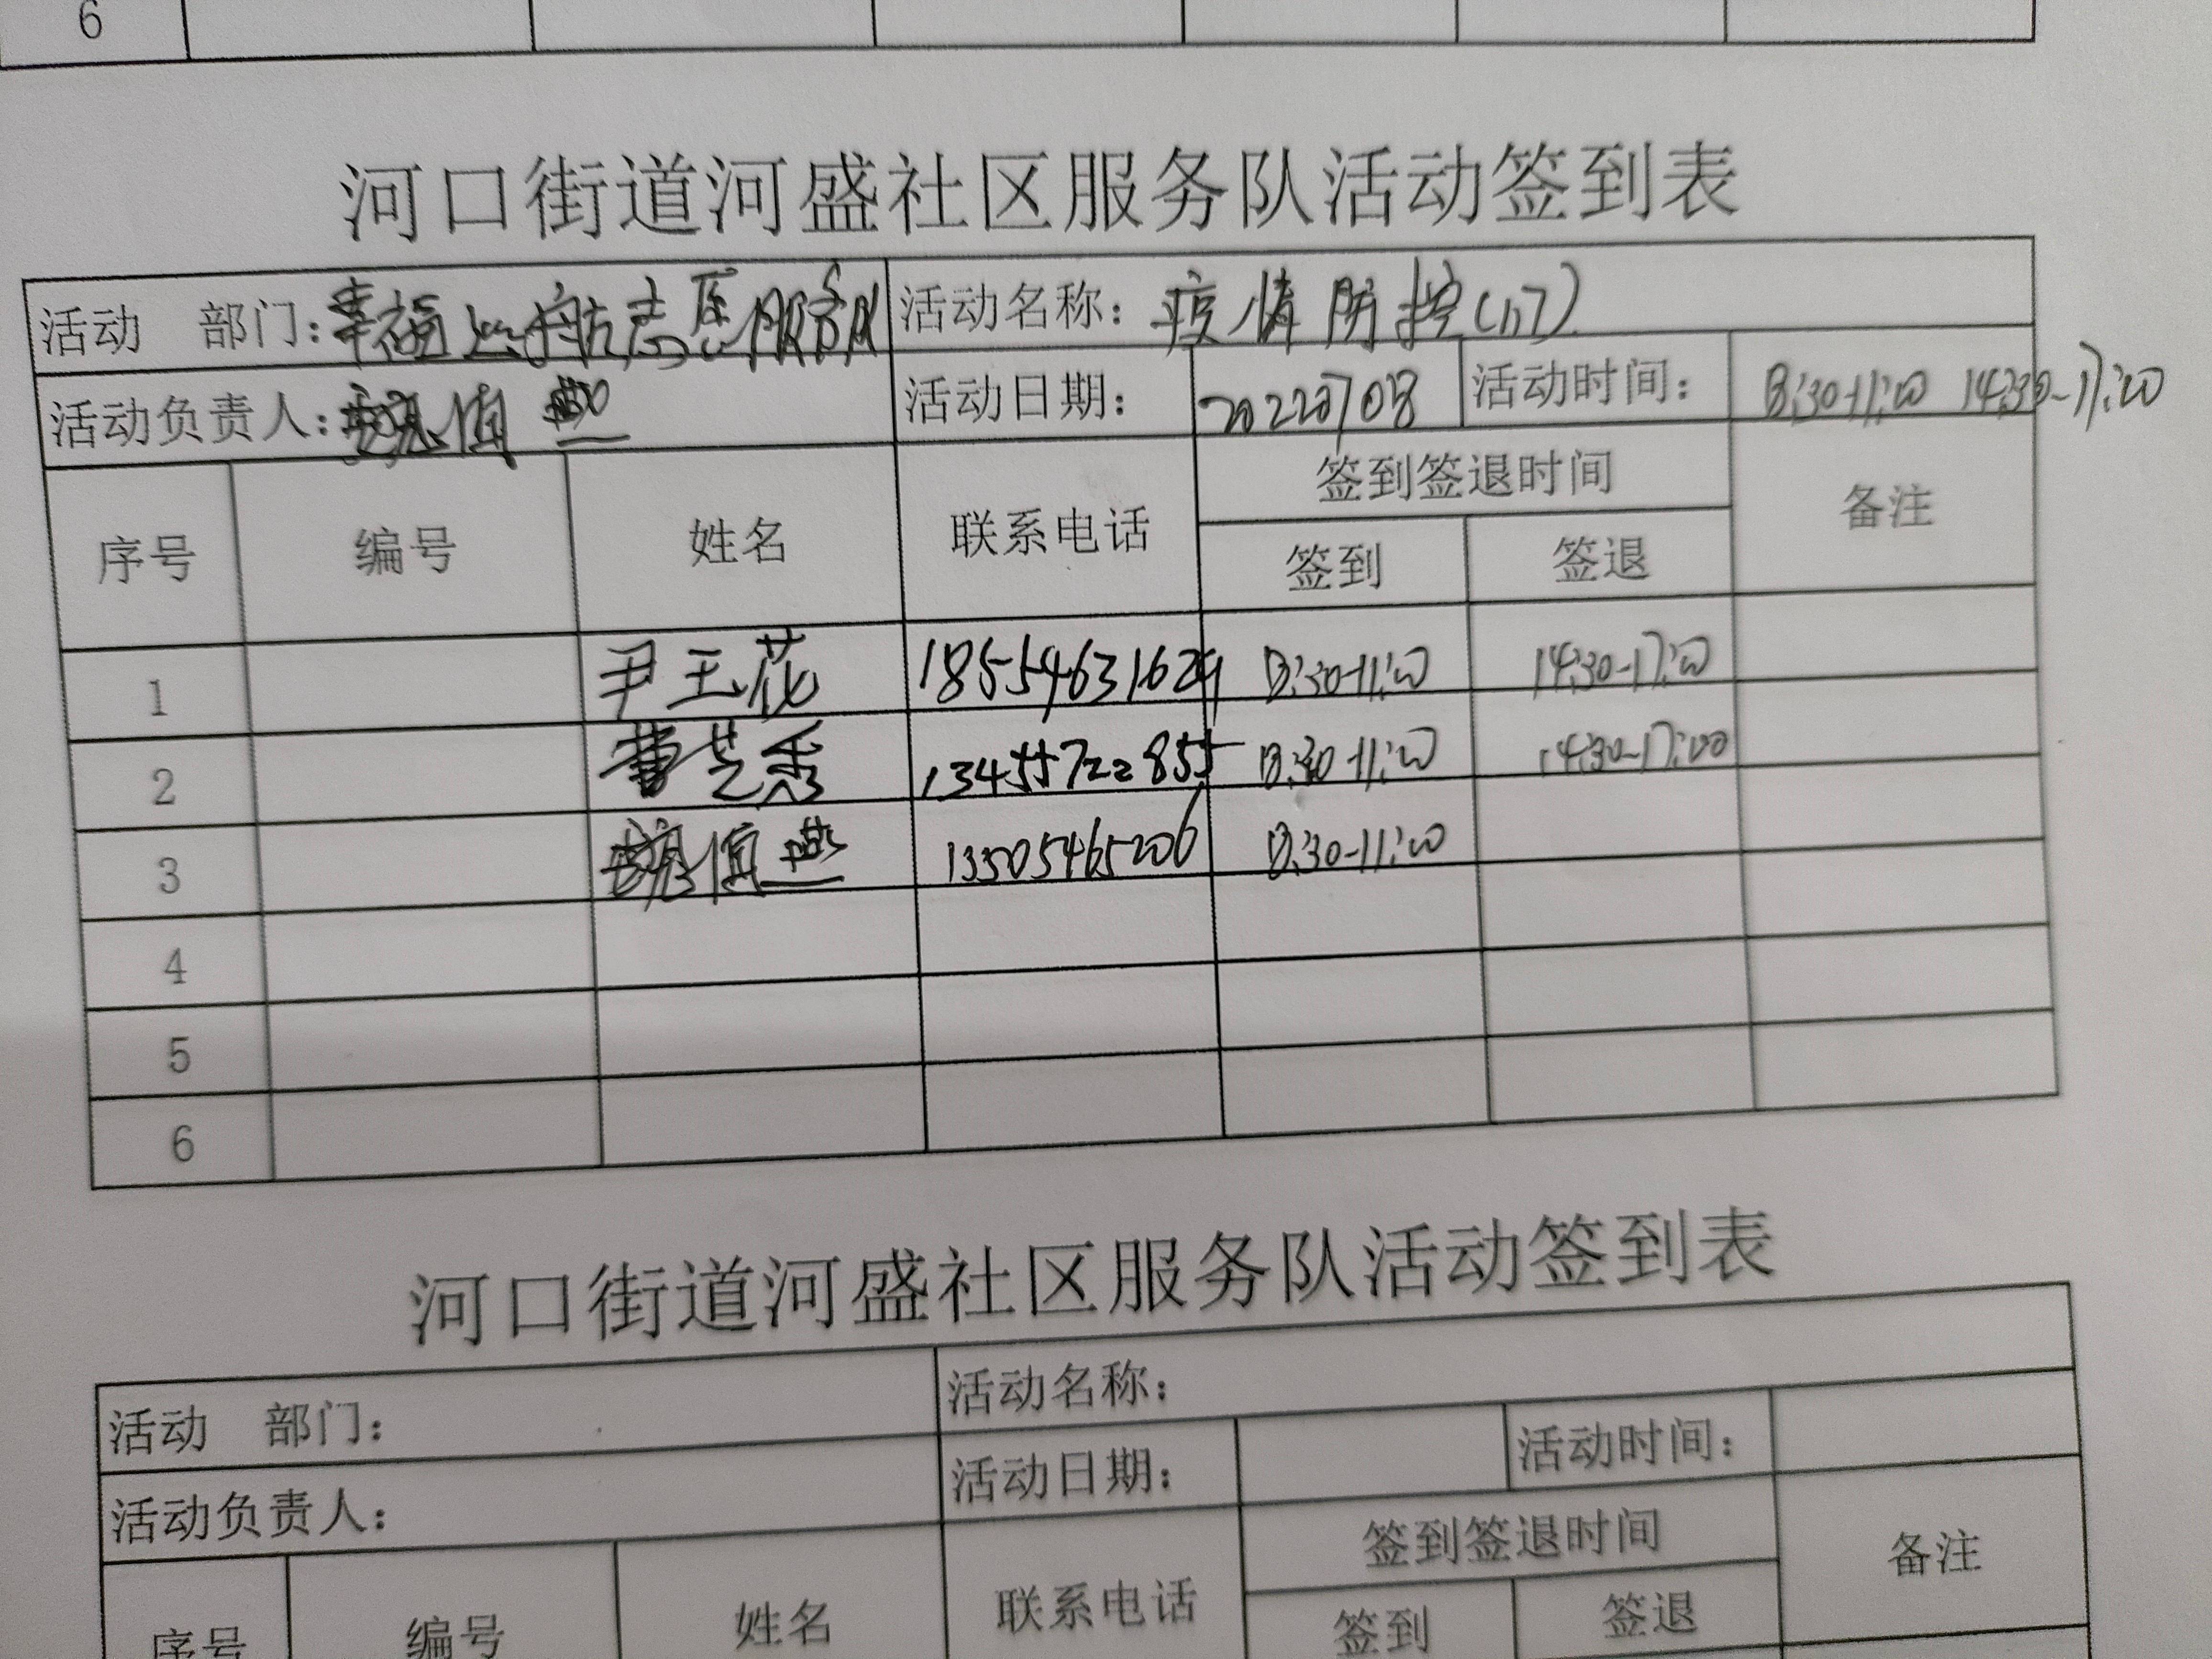 6
河口街道河盛社区服务队活动签到表
活动 部门：幸福 志愿服务队 活动名称：疫情防控(117)
活动负责人： 值 燕 活动日期： 20220708 活动时间： 8:30-11:00 14:30-17:00
序号 编号 姓名 联系电话 签到签退时间 备注
签到 签退
1 尹玉花 18554631629 8:30-11:00 14:30-17:00
2 曹芝秀 13455722855 8:30-11:00 14:30-17:00
3 值燕 13305465206 8:30-11:00
4
5
6
河口街道河盛社区服务队活动签到表
活动 部门： 活动名称：
活动负责人： 活动日期： 活动时间：
序号 编号 姓名 联系电话 签到签退时间 备注
签到 签退